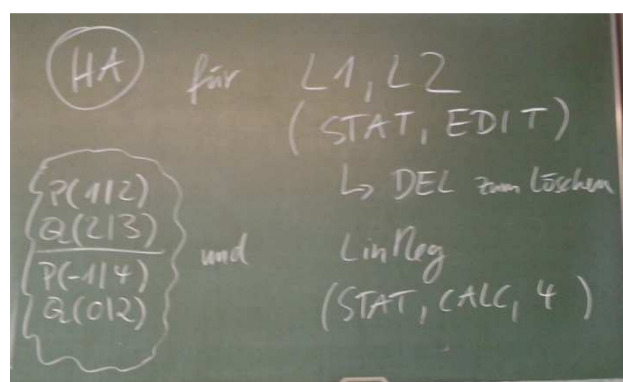 HA für L1, L2
(STAT, EDIT)
↳ DEL zum löschen
P(1|2)
Q(2|3)
P(-1|4)
Q(0|2)
und LinReg
(STAT, CALC, 4)